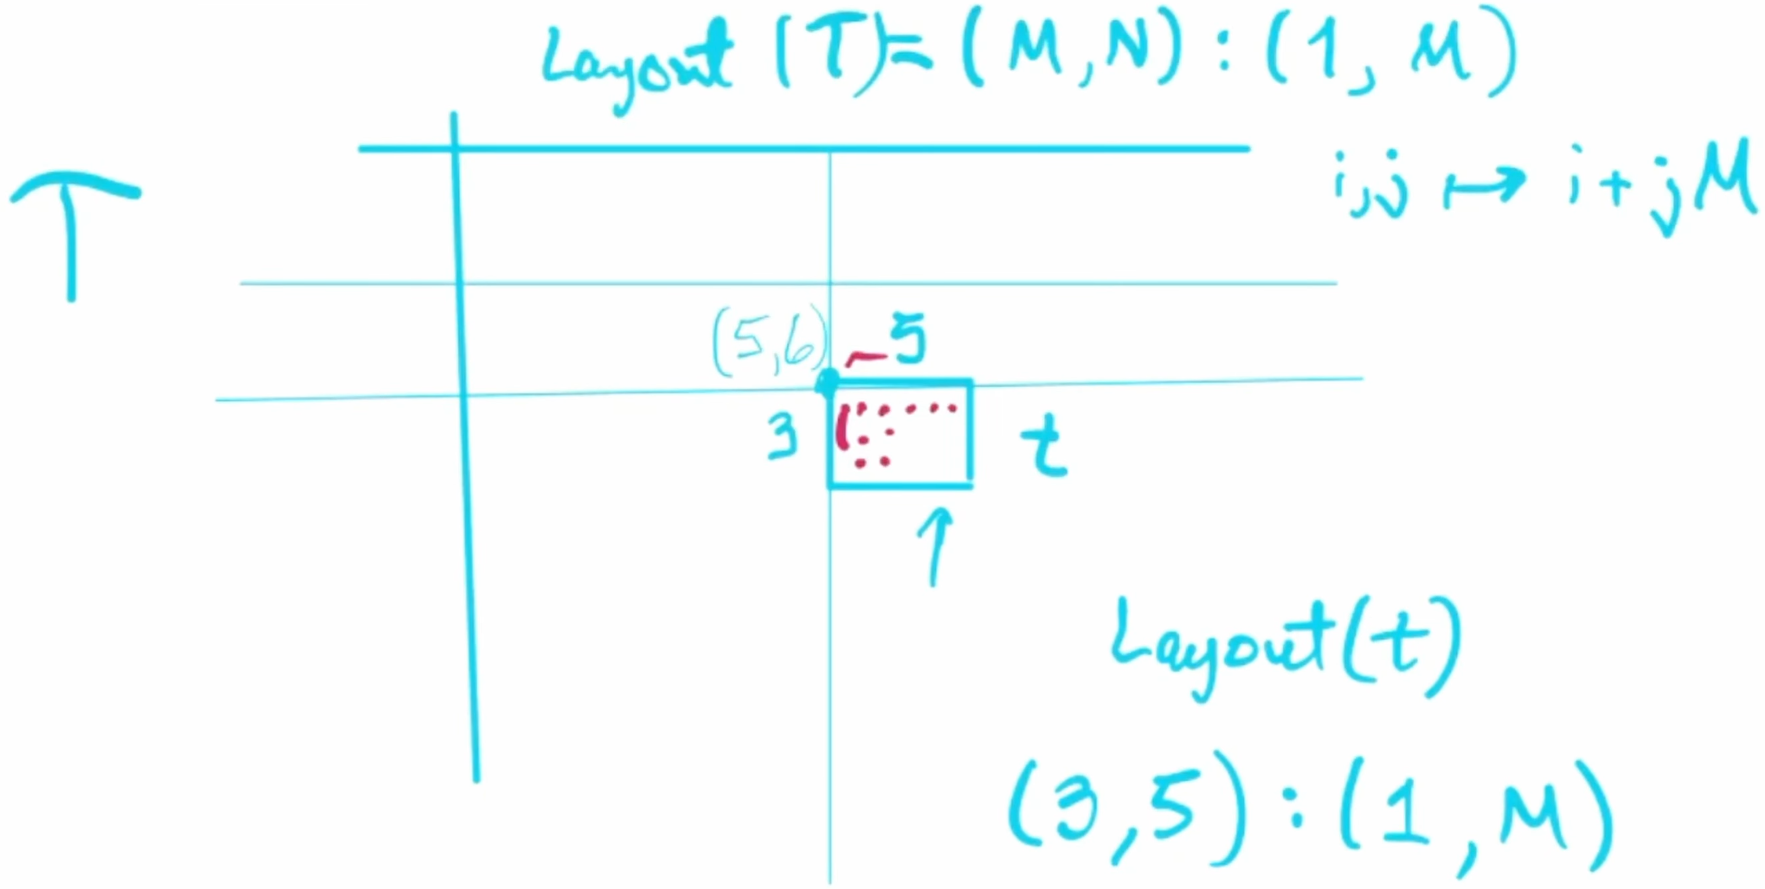 Layout (T) = (M, N) : (1, M)
T
i, j ↦ i + j M
(5,6)
5
3
t
Layout(t)
(3, 5) : (1, M)